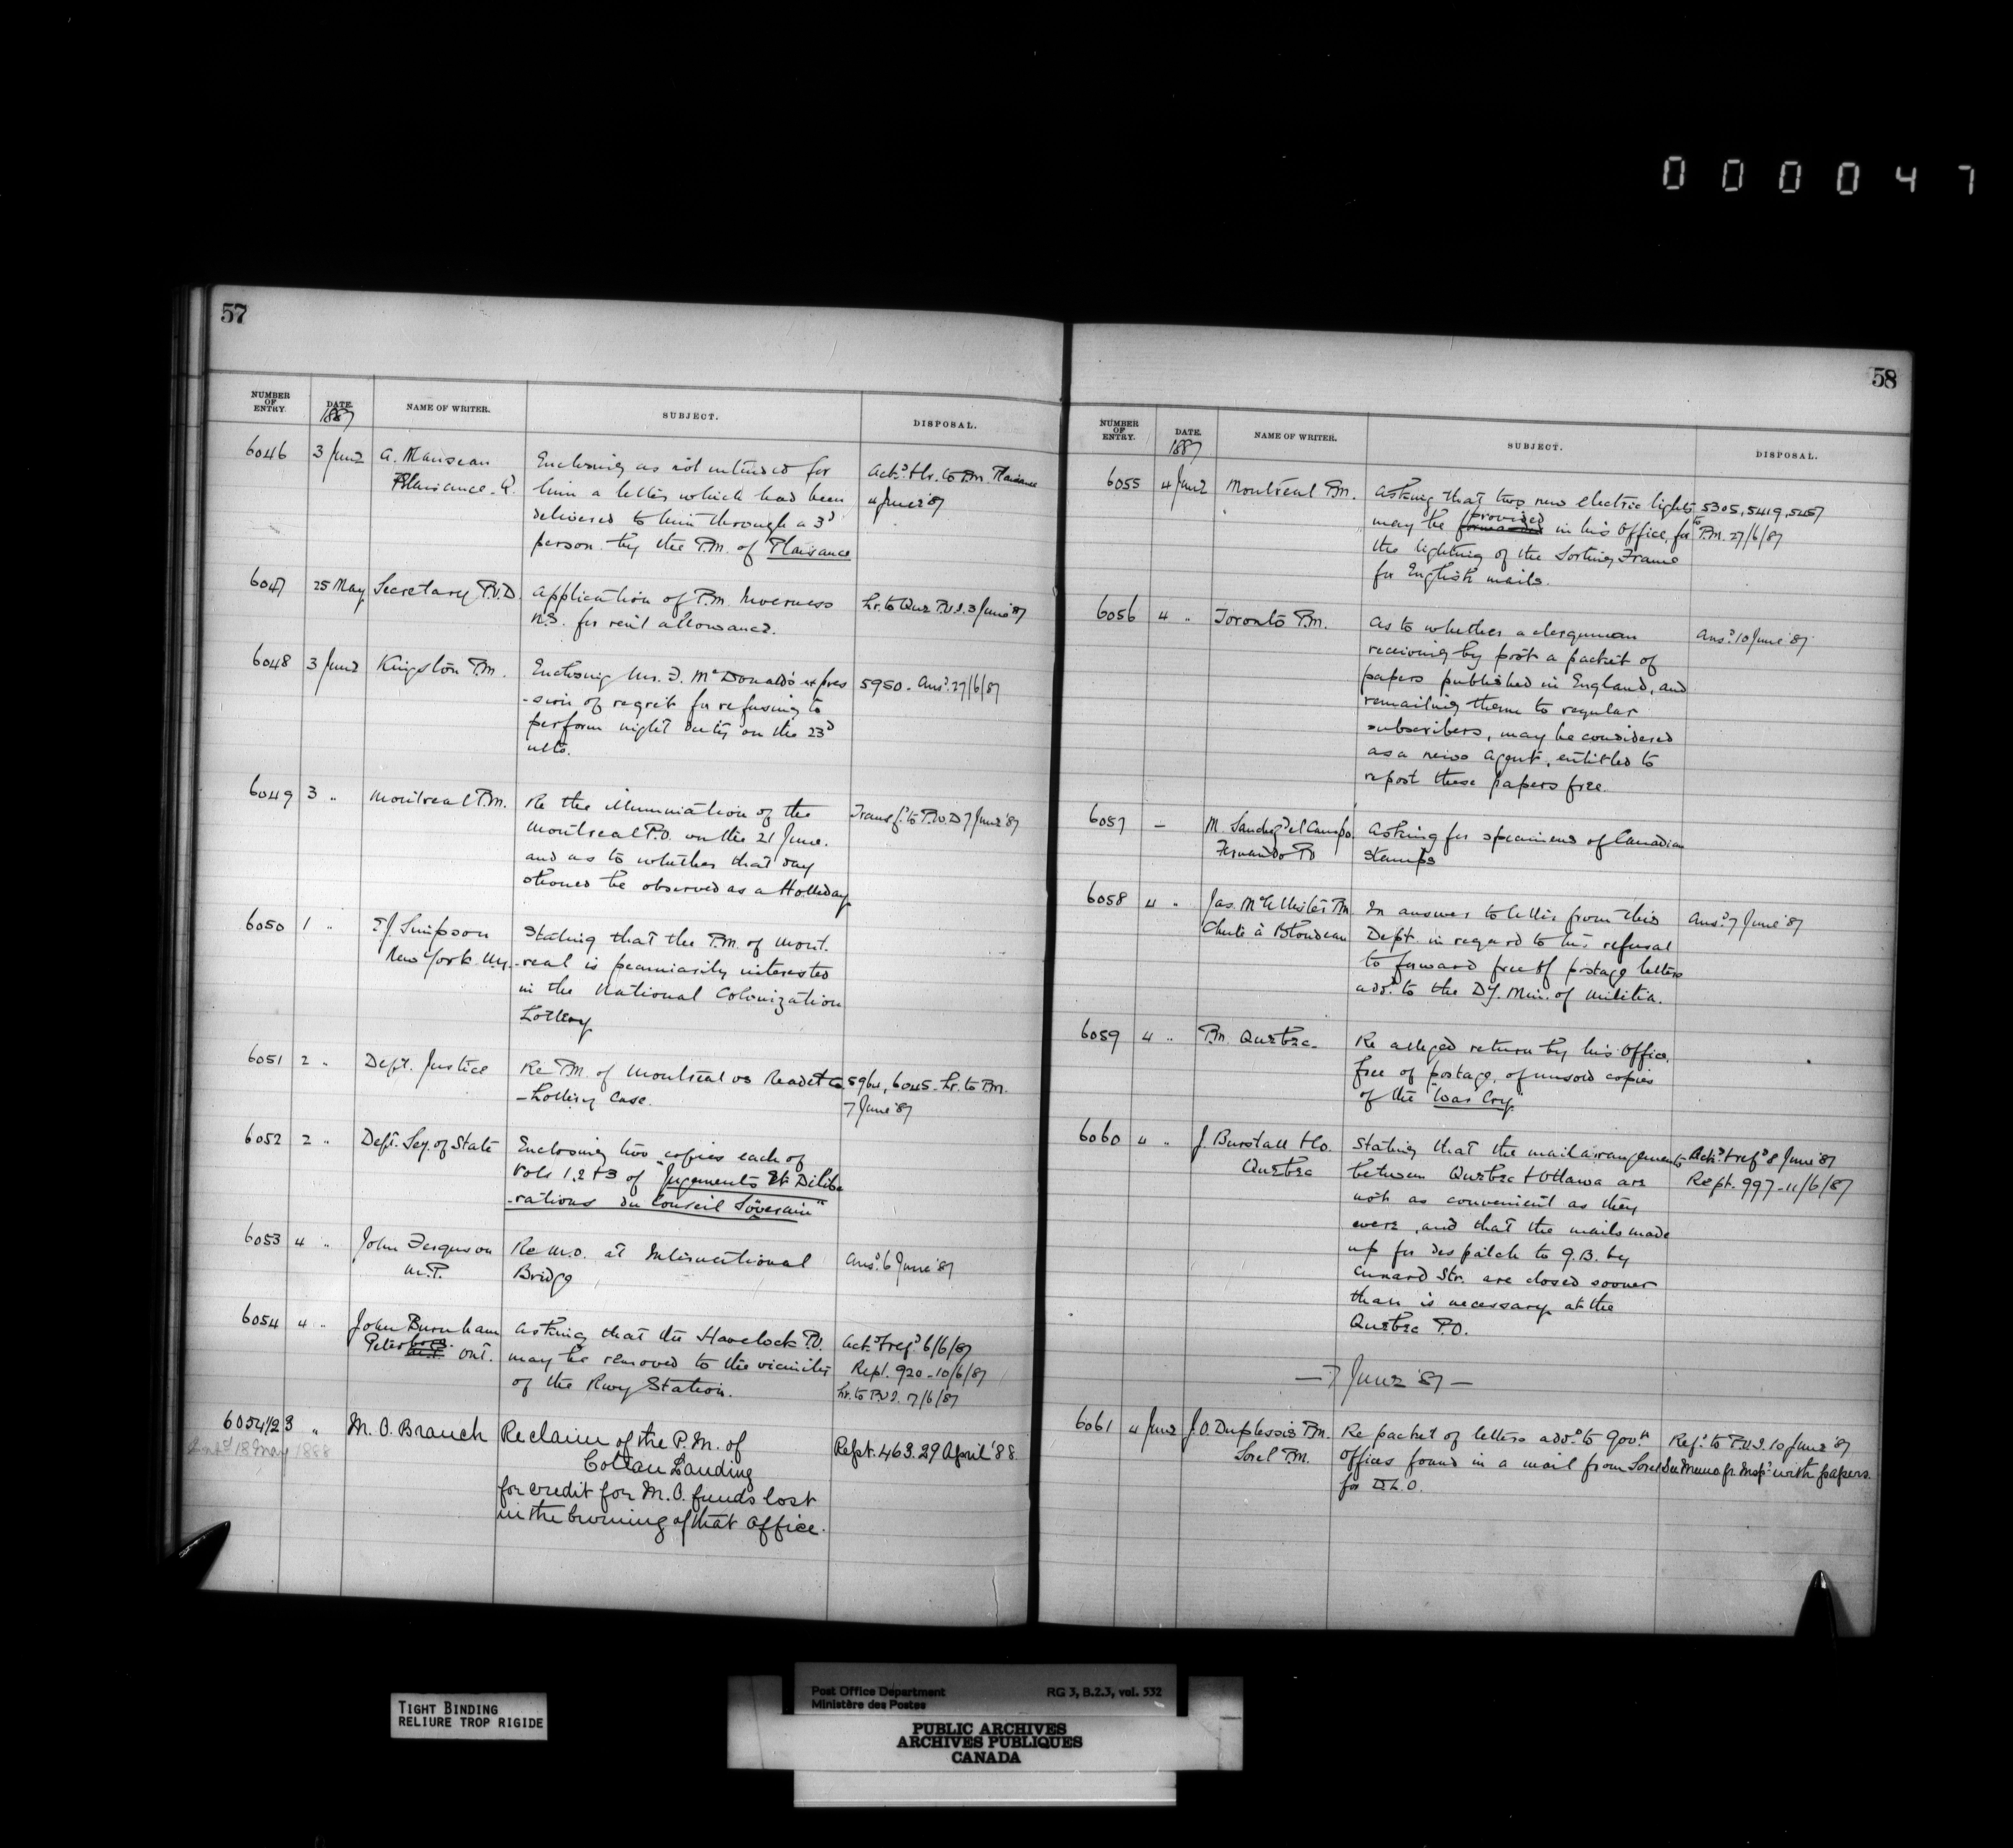 000047
57
NUMBER OF ENTRY. DATE. 1887 NAME OF WRITER. SUBJECT. DISPOSAL.
6046 3 June A. Manseau Enclosing as not intended for Ackd. & lr. to P.M. Plaisance
Plaisance. Q. him a letter which had been 4 June '87
delivered to him through a 3d
person by the P.M. of Plaisance
6047 25 May Secretary P.O.D. Application of P.M. Inverness Lr. to P.O.I. 3 June '87
N.S. for rent allowance.
6048 3 June Kingston P.M. Enclosing Mr. F. McDonald's expres 5950. Ansd. 27/6/87
-sion of regret for refusing to
perform night duty on the 23d
ulto.
6049 3 " Montreal P.M. Re the illumination of the Transfd. to P.W.D 7 June '87
Montreal P.O. on the 21 June.
and as to whether that day
should be observed as a Holliday
6050 1 " E.J. Simpson Stating that the P.M. of Mont.
New York. Ny. -real is pecuniarily interested
in the National Colonization
Lottery
6051 2 " Dept. Justice Re P.M. of Montreal vs Co. 5964, 6045. Lr. to P.M.
- Lottery Case. 7 June '87
6052 2 " Dept. Secy. of State Enclosing two copies each of
Vols 1, 2 & 3 of "Jugements et Délibé
-rations du Conseil Souverain"
6053 4 " John Ferguson Re M.O. at International Ansd. 6 June '87
M.P. Bridge
6054 4 " John Burnham Asking that the Havelock P.O. Ackd. & refd. 6/6/87
Peterboro. Ont. may be removed to the vicinity Rept. 920 - 10/6/87
of the Rwy Station. Lr. to P.O.I. 7/6/87
6054 1/2 3 " M. O. Branch Reclaim of the P. M. of Rept. 463. 29 April '88
18 May 1888 Coteau Landing
for credit for M. O. funds lost
in the burning of that Office.
58
NUMBER OF ENTRY. DATE. 1887 NAME OF WRITER. SUBJECT. DISPOSAL.
6055 4 June Montreal P.M. Asking that two new electric lights 5305, 5419, 5457
may be provided forwarded in his Office, for to P.M. 27/6/87
the lighting of the Sorting Frame
for English mails.
6056 4 " Toronto P.M. As to whether a clergyman Ansd. 10 June '87
receiving by post a packet of
papers published in England, and
remailing them to regular
subscribers, may be considered
as a news agent, entitled to
repost these papers free.
6057 - M. del Campo Asking for specimens of Canadian
Fernando Po stamps
6058 4 " Jas. McAllister P.M. In answer to letter from this Ansd. 7 June '87
Chute à Blondeau Dept. in regard to his refusal
to forward free of postage letters
add. to the Dy. Min. of Militia.
6059 4 " P.M. Quebec. Re alleged return by his Office,
free of postage, of unsold copies
of the "War Cry"
6060 4 " J. Burstall & Co. Stating that the mail arrangements Ackd. & refd. 8 June '87
Quebec between Quebec & Ottawa are Rept. 997 - 11/6/87
not as convenient as they
were, and that the mails made
up for despatch to G.B. by
Cunard Str. are closed sooner
than is necessary at the
Quebec P.O.
- 7 June '87 -
6061 4 June J. O. Duplessis P.M. Re packet of letters addd. to Govt. Refd. to P.O.I. 10 June '87
Sorel P.M. offices found in a mail from Sorel See Memo fr. Inspr. with papers.
for D.L.O.
TIGHT BINDING
RELIURE TROP RIGIDE
Post Office Department RG 3, B.2.3, vol. 532
Ministère des Postes
PUBLIC ARCHIVES
ARCHIVES PUBLIQUES
CANADA